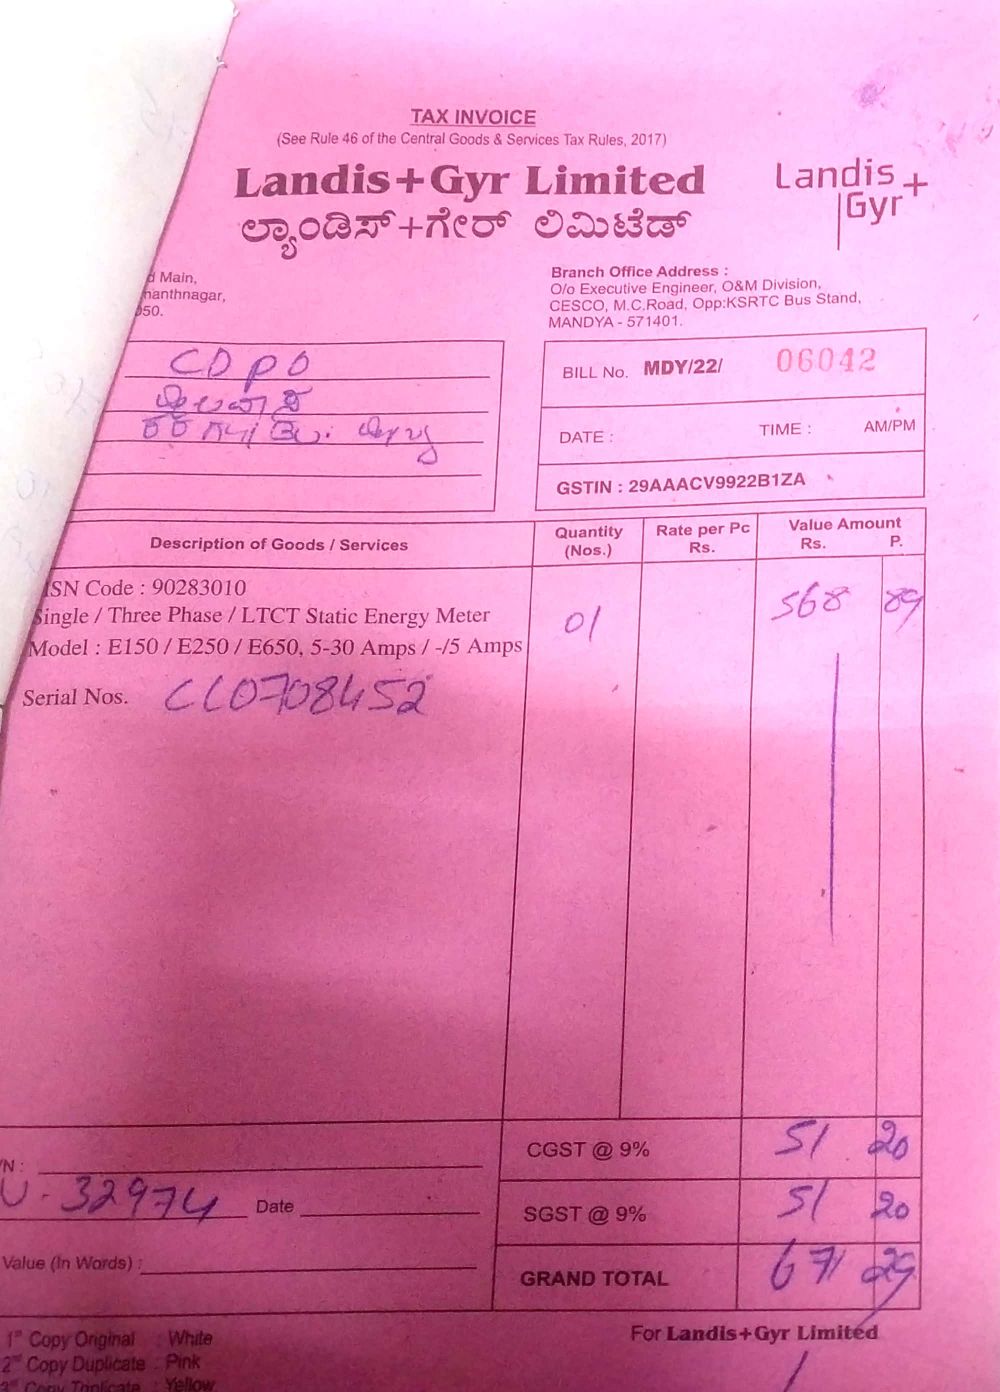 TAX INVOICE
(See Rule 46 of the Central Goods & Services Tax Rules, 2017)
Landis+Gyr Limited
ಲ್ಯಾಂಡಿಸ್+ಗೇರ್ ಲಿಮಿಟೆಡ್
Landis+
Gyr
d Main,
nanthnagar,
050.
Branch Office Address :
O/o Executive Engineer, O&M Division,
CESCO, M.C.Road, Opp:KSRTC Bus Stand,
MANDYA - 571401.
CDPO
BILL No. MDY/22/ 06042
DATE : TIME : AM/PM
GSTIN : 29AAACV9922B1ZA
Description of Goods / Services Quantity (Nos.) Rate per Pc Rs. Value Amount Rs. P.
ISN Code : 90283010
Single / Three Phase / LTCT Static Energy Meter 01 568 89
Model : E150 / E250 / E650, 5-30 Amps / -/5 Amps
Serial Nos. CC0708452
CGST @ 9% 51 20
/N :
U - 32974 Date
SGST @ 9% 51 20
Value (In Words) :
GRAND TOTAL 671 29
For Landis+Gyr Limited
1st Copy Original : White
2nd Copy Duplicate : Pink
3rd Copy Triplicate : Yellow